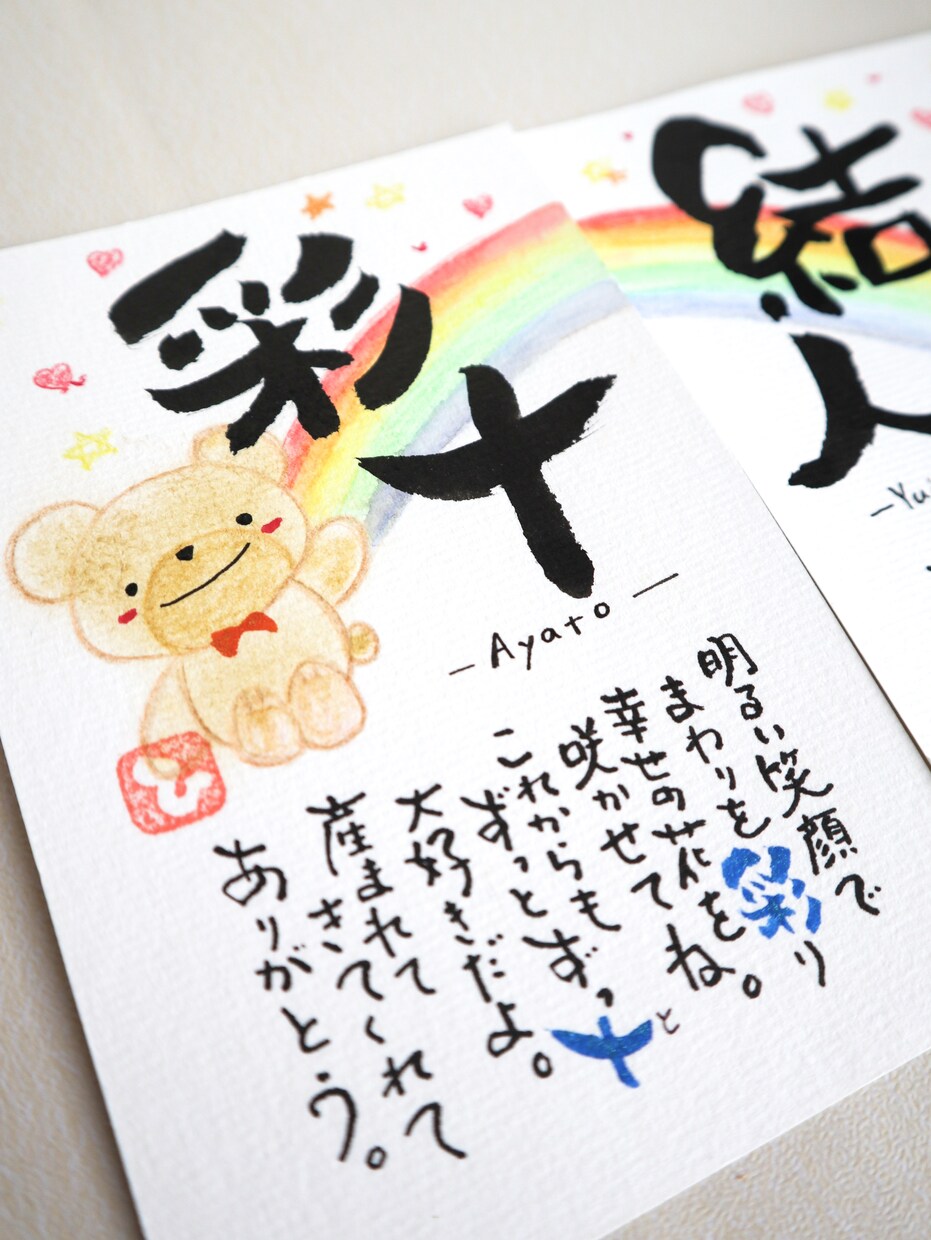 彩十
-Ayato-
明るい笑顔で
まわりを彩り
幸せの花を
咲かせてね。
これからも
ずっとずっ十と
大好きだよ。
産まれて
きてくれて
ありがとう。
結人